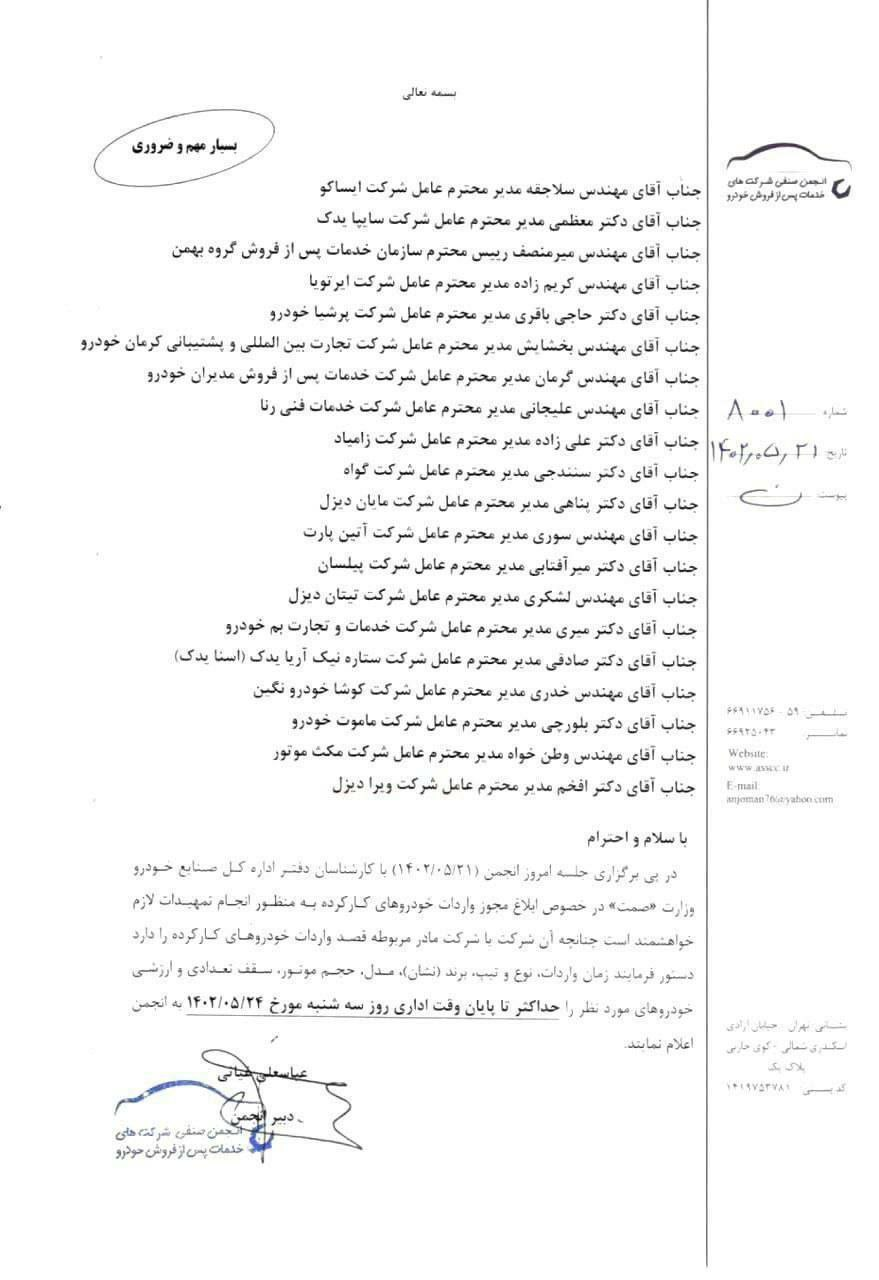 بسمه تعالی
بسیار مهم و ضروری
انجمن صنفی شرکت های
خدمات پس از فروش خودرو
جناب آقای مهندس سلاجقه مدیر محترم عامل شرکت ایساکو
جناب آقای دکتر معظمی مدیر محترم عامل شرکت سایپا یدک
جناب آقای مهندس میرمنصف رییس محترم سازمان خدمات پس از فروش گروه بهمن
جناب آقای مهندس کریم زاده مدیر محترم عامل شرکت ایرتویا
جناب آقای دکتر حاجی باقری مدیر محترم عامل شرکت پرشیا خودرو
جناب آقای مهندس بخشایش مدیر محترم عامل شرکت تجارت بین المللی و پشتیبانی کرمان خودرو
جناب آقای مهندس گرمان مدیر محترم عامل شرکت خدمات پس از فروش مدیران خودرو
جناب آقای مهندس علیجانی مدیر محترم عامل شرکت خدمات فنی رنا
جناب آقای دکتر علی زاده مدیر محترم عامل شرکت زامیاد
جناب آقای دکتر سنندجی مدیر محترم عامل شرکت گواه
جناب آقای دکتر پناهی مدیر محترم عامل شرکت مایان دیزل
جناب آقای مهندس سوری مدیر محترم عامل شرکت آتین پارت
جناب آقای دکتر میرآفتابی مدیر محترم عامل شرکت پیلسان
جناب آقای مهندس لشکری مدیر محترم عامل شرکت تیتان دیزل
جناب آقای دکتر میری مدیر محترم عامل شرکت خدمات و تجارت بم خودرو
جناب آقای دکتر صادقی مدیر محترم عامل شرکت ستاره نیک آریا یدک (اسنا یدک)
جناب آقای مهندس خدری مدیر محترم عامل شرکت کوشا خودرو نگین
جناب آقای دکتر بلورچی مدیر محترم عامل شرکت ماموت خودرو
جناب آقای مهندس وطن خواه مدیر محترم عامل شرکت مکث موتور
جناب آقای دکتر افخم مدیر محترم عامل شرکت ویرا دیزل
با سلام و احترام
در پی برگزاری جلسه امروز انجمن (۱۴۰۲/۰۵/۲۱) با کارشناسان دفتر اداره کل صنایع خودرو
وزارت «صمت» در خصوص ابلاغ مجوز واردات خودروهای کارکرده به منظور انجام تمهیدات لازم
خواهشمند است چنانچه آن شرکت یا شرکت مادر مربوطه قصد واردات خودروهای کارکرده را دارد
دستور فرمایند زمان واردات، نوع و تیپ، برند (نشان)، مدل، حجم موتور، سقف تعدادی و ارزشی
خودروهای مورد نظر را حداکثر تا پایان وقت اداری روز سه شنبه مورخ ۱۴۰۲/۰۵/۲۴ به انجمن
اعلام نمایند.
عباسعلی غیاثی
دبیر انجمن
انجمن صنفی شرکت های
خدمات پس از فروش خودرو
شماره ۸۰۰۱
تاریخ ۱۴۰۲,۰۵,۲۱
پیوست ن
تلفن: ۵۹ - ۶۶۹۱۱۷۵۶
نمابر ۶۶۹۲۵۰۴۳
Website:
www.asscc.ir
E-mail:
anjoman76@yahoo.com
نشانی: تهران - خیابان آزادی
اسکندری شمالی - کوی حاربی
پلاک یک
کد پستی: ۱۴۱۹۷۵۳۷۸۱